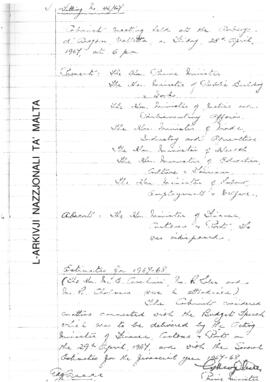 Sitting No 46/67
Cabinet meeting held at the Auberge
d'Aragon, Valletta on Friday 28th April,
1967, at 6 pm
Present: The Hon. Prime Minister
The Hon. Minister of Public Building
& Works.
The Hon. Minister of Justice and
Parliamentary Affairs.
The Hon. Minister of Trade,
Industry and Agriculture
The Hon. Minister of Health
The Hon. Minister of Education,
Culture & Tourism.
The Hon. Minister of Labour,
Employment & Welfare.
Absent: The Hon. Minister of Finance,
Customs & Ports. He
was indisposed.
Estimates for 1967-68
(The Hon. Mr
in attendance)
The Cabinet considered
matters connected with the Budget Speech
which was to be delivered by the Acting
Minister of Finance, Customs & Ports on
the 29th April, 1967, and with the
Estimates for the financial year 1967-68
Prime Minister
L-ARKIVJI NAZZJONALI TA' MALTA